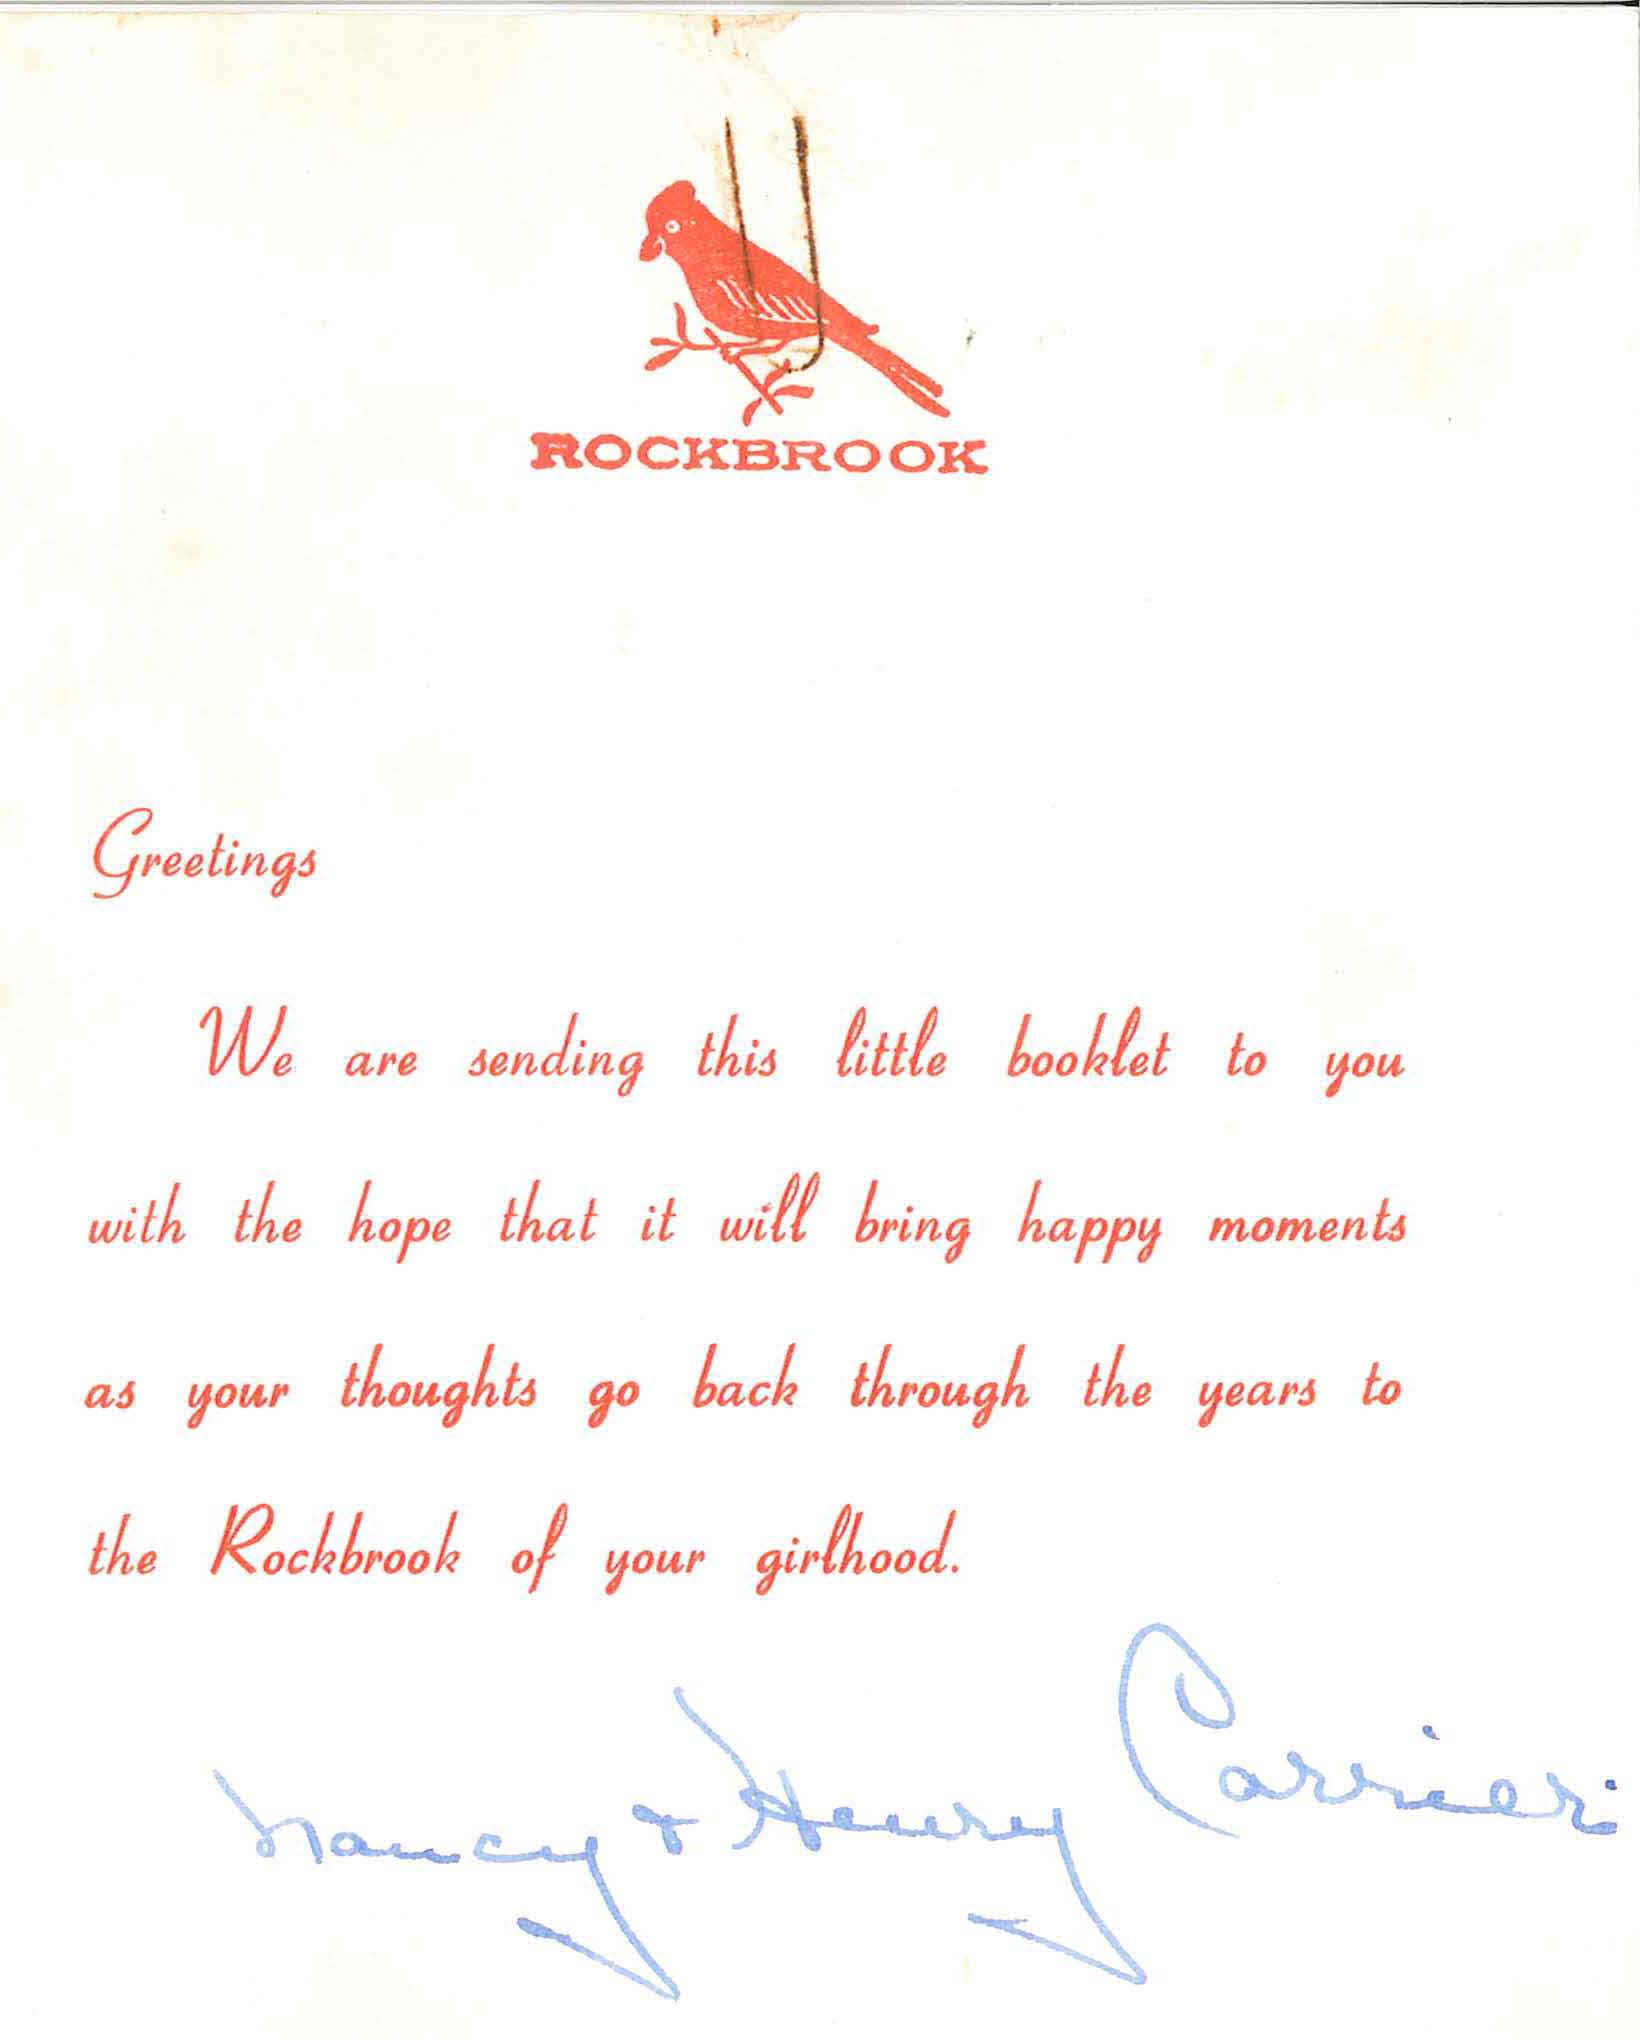 ROCKBROOK
Greetings
We are sending this little booklet to you
with the hope that it will bring happy moments
as your thoughts go back through the years to
the Rockbrook of your girlhood.
Nancy + Henry Carrier